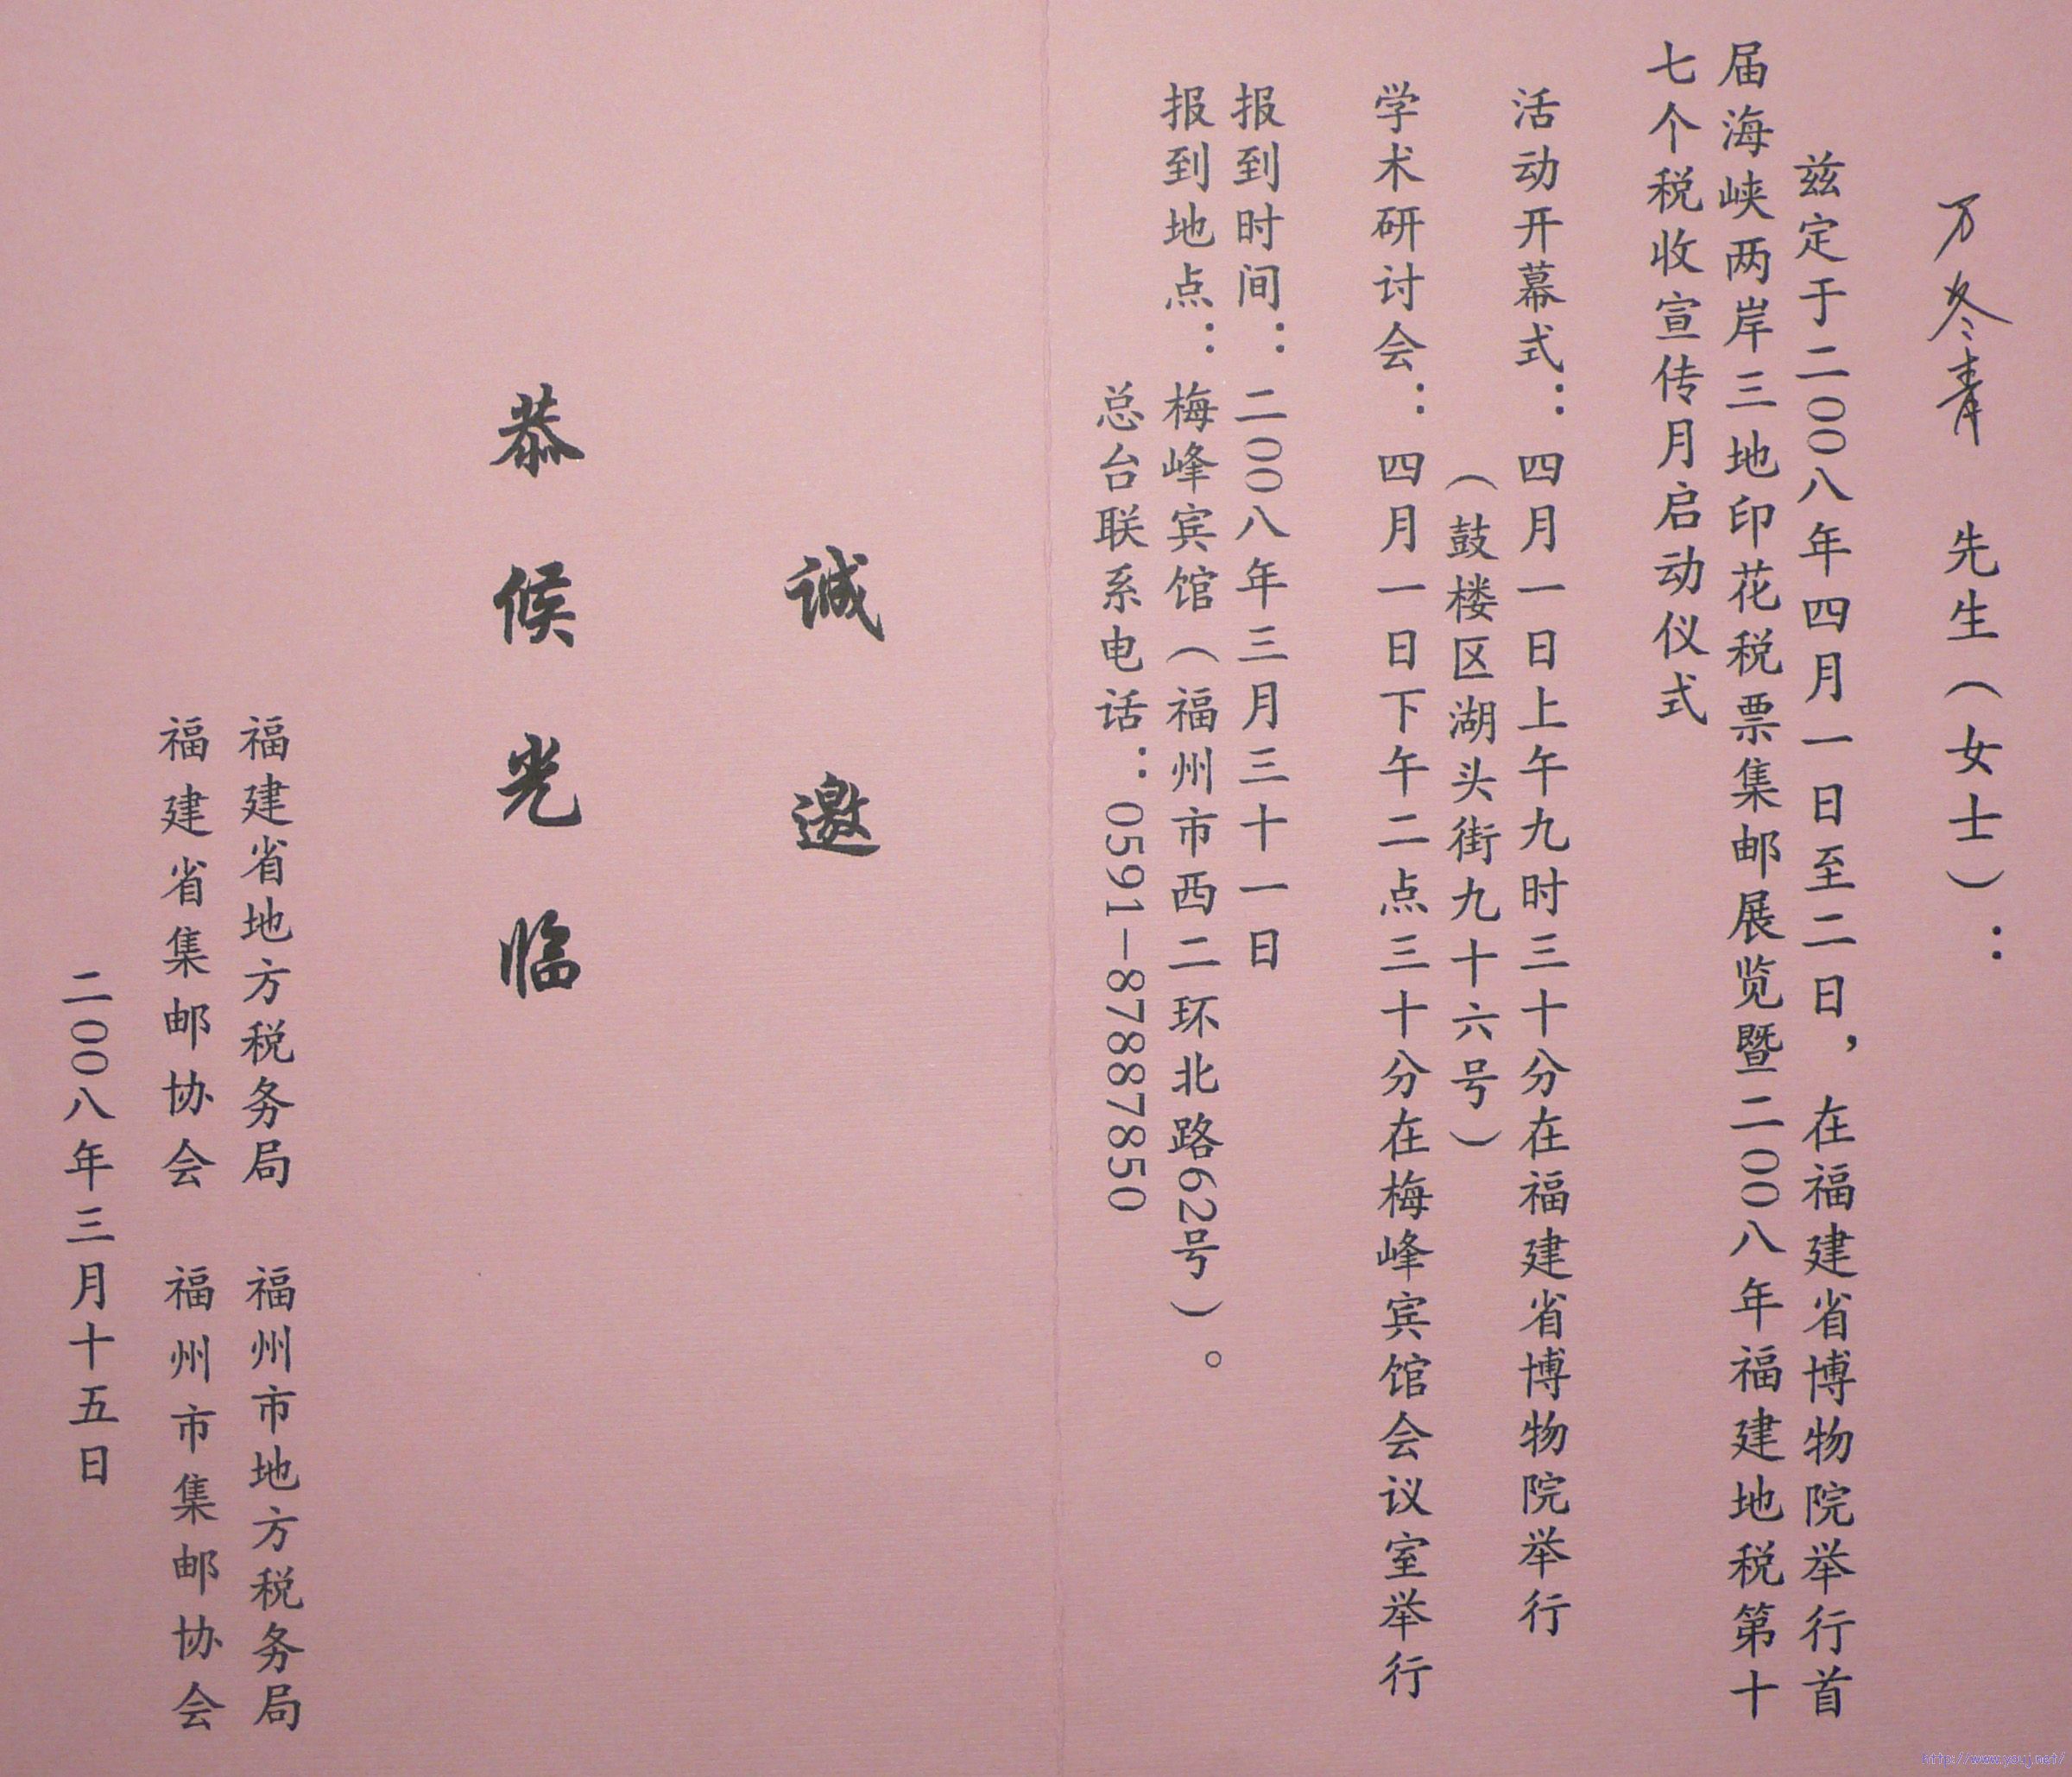 万冬青 先生（女士）：
兹定于二00八年四月一日至二日，在福建省博物院举行首
届海峡两岸三地印花税票集邮展览暨二00八年福建地税第十
七个税收宣传月启动仪式
活动开幕式：四月一日上午九时三十分在福建省博物院举行
（鼓楼区湖头街九十六号）
学术研讨会：四月一日下午二点三十分在梅峰宾馆会议室举行
报到时间：二00八年三月三十一日
报到地点：梅峰宾馆（福州市西二环北路62号）。
总台联系电话：0591-87887850
诚邀
恭候光临
福建省地方税务局 福州市地方税务局
福建省集邮协会 福州市集邮协会
二00八年三月十五日
http://www.youj.net/